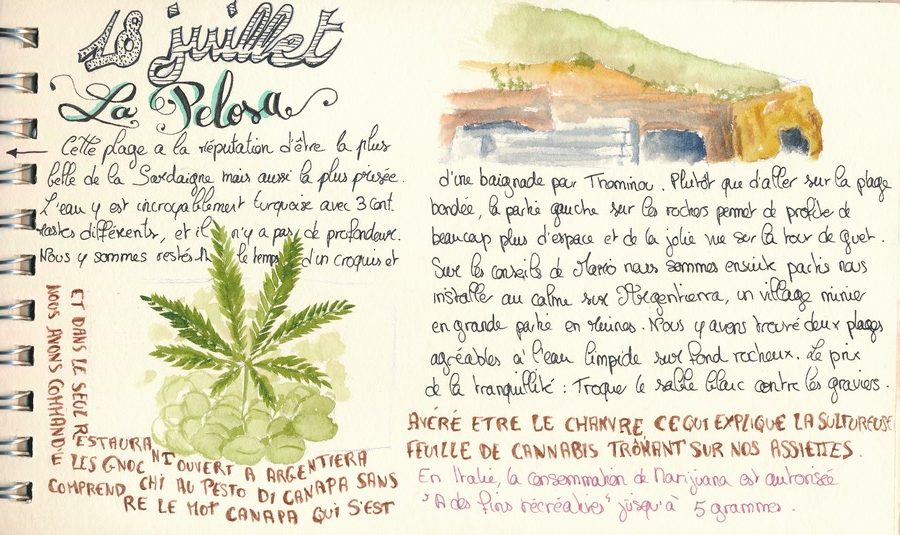 18 juillet
La Pelosa
Cette plage a la réputation d'être la plus
belle de la Sardaigne mais aussi la plus prisée.
L'eau y est incroyablement turquoise avec 3 cont.
rastes différents, et il n'y a pas de profondeur.
Nous y sommes restés le temps d'un croquis et
ET DANS LE SEUL RESTAURANT OUVERT A ARGENTIERA
NOUS AVONS COMMANDÉ LES GNOCCHI AU PESTO DI CANAPA SANS
COMPRENDRE LE MOT CANAPA QUI S'EST
d'une baignade par Thominou. Plutôt que d'aller sur la plage
bondée, la partie gauche sur les rochers permet de profiter de
beaucoup plus d'espace et de la jolie vue sur la tour de guet.
Sur les conseils de nous sommes ensuite partis nous
installer au calme sur Argentierra, un village minier
en grande partie en ruines. Nous y avons trouvé deux plages
agréables à l'eau limpide sur fond rocheux. Le prix
de la tranquillité : Troque le sable blanc contre les graviers.
AVÉRÉ ETRE LE CHANVRE CE QUI EXPLIQUE LA SULFUREUSE
FEUILLE DE CANNABIS TRÔNANT SUR NOS ASSIETTES.
En Italie, la consommation de Marijuana est autorisée
"A des fins récréatives" jusqu'à 5 grammes.